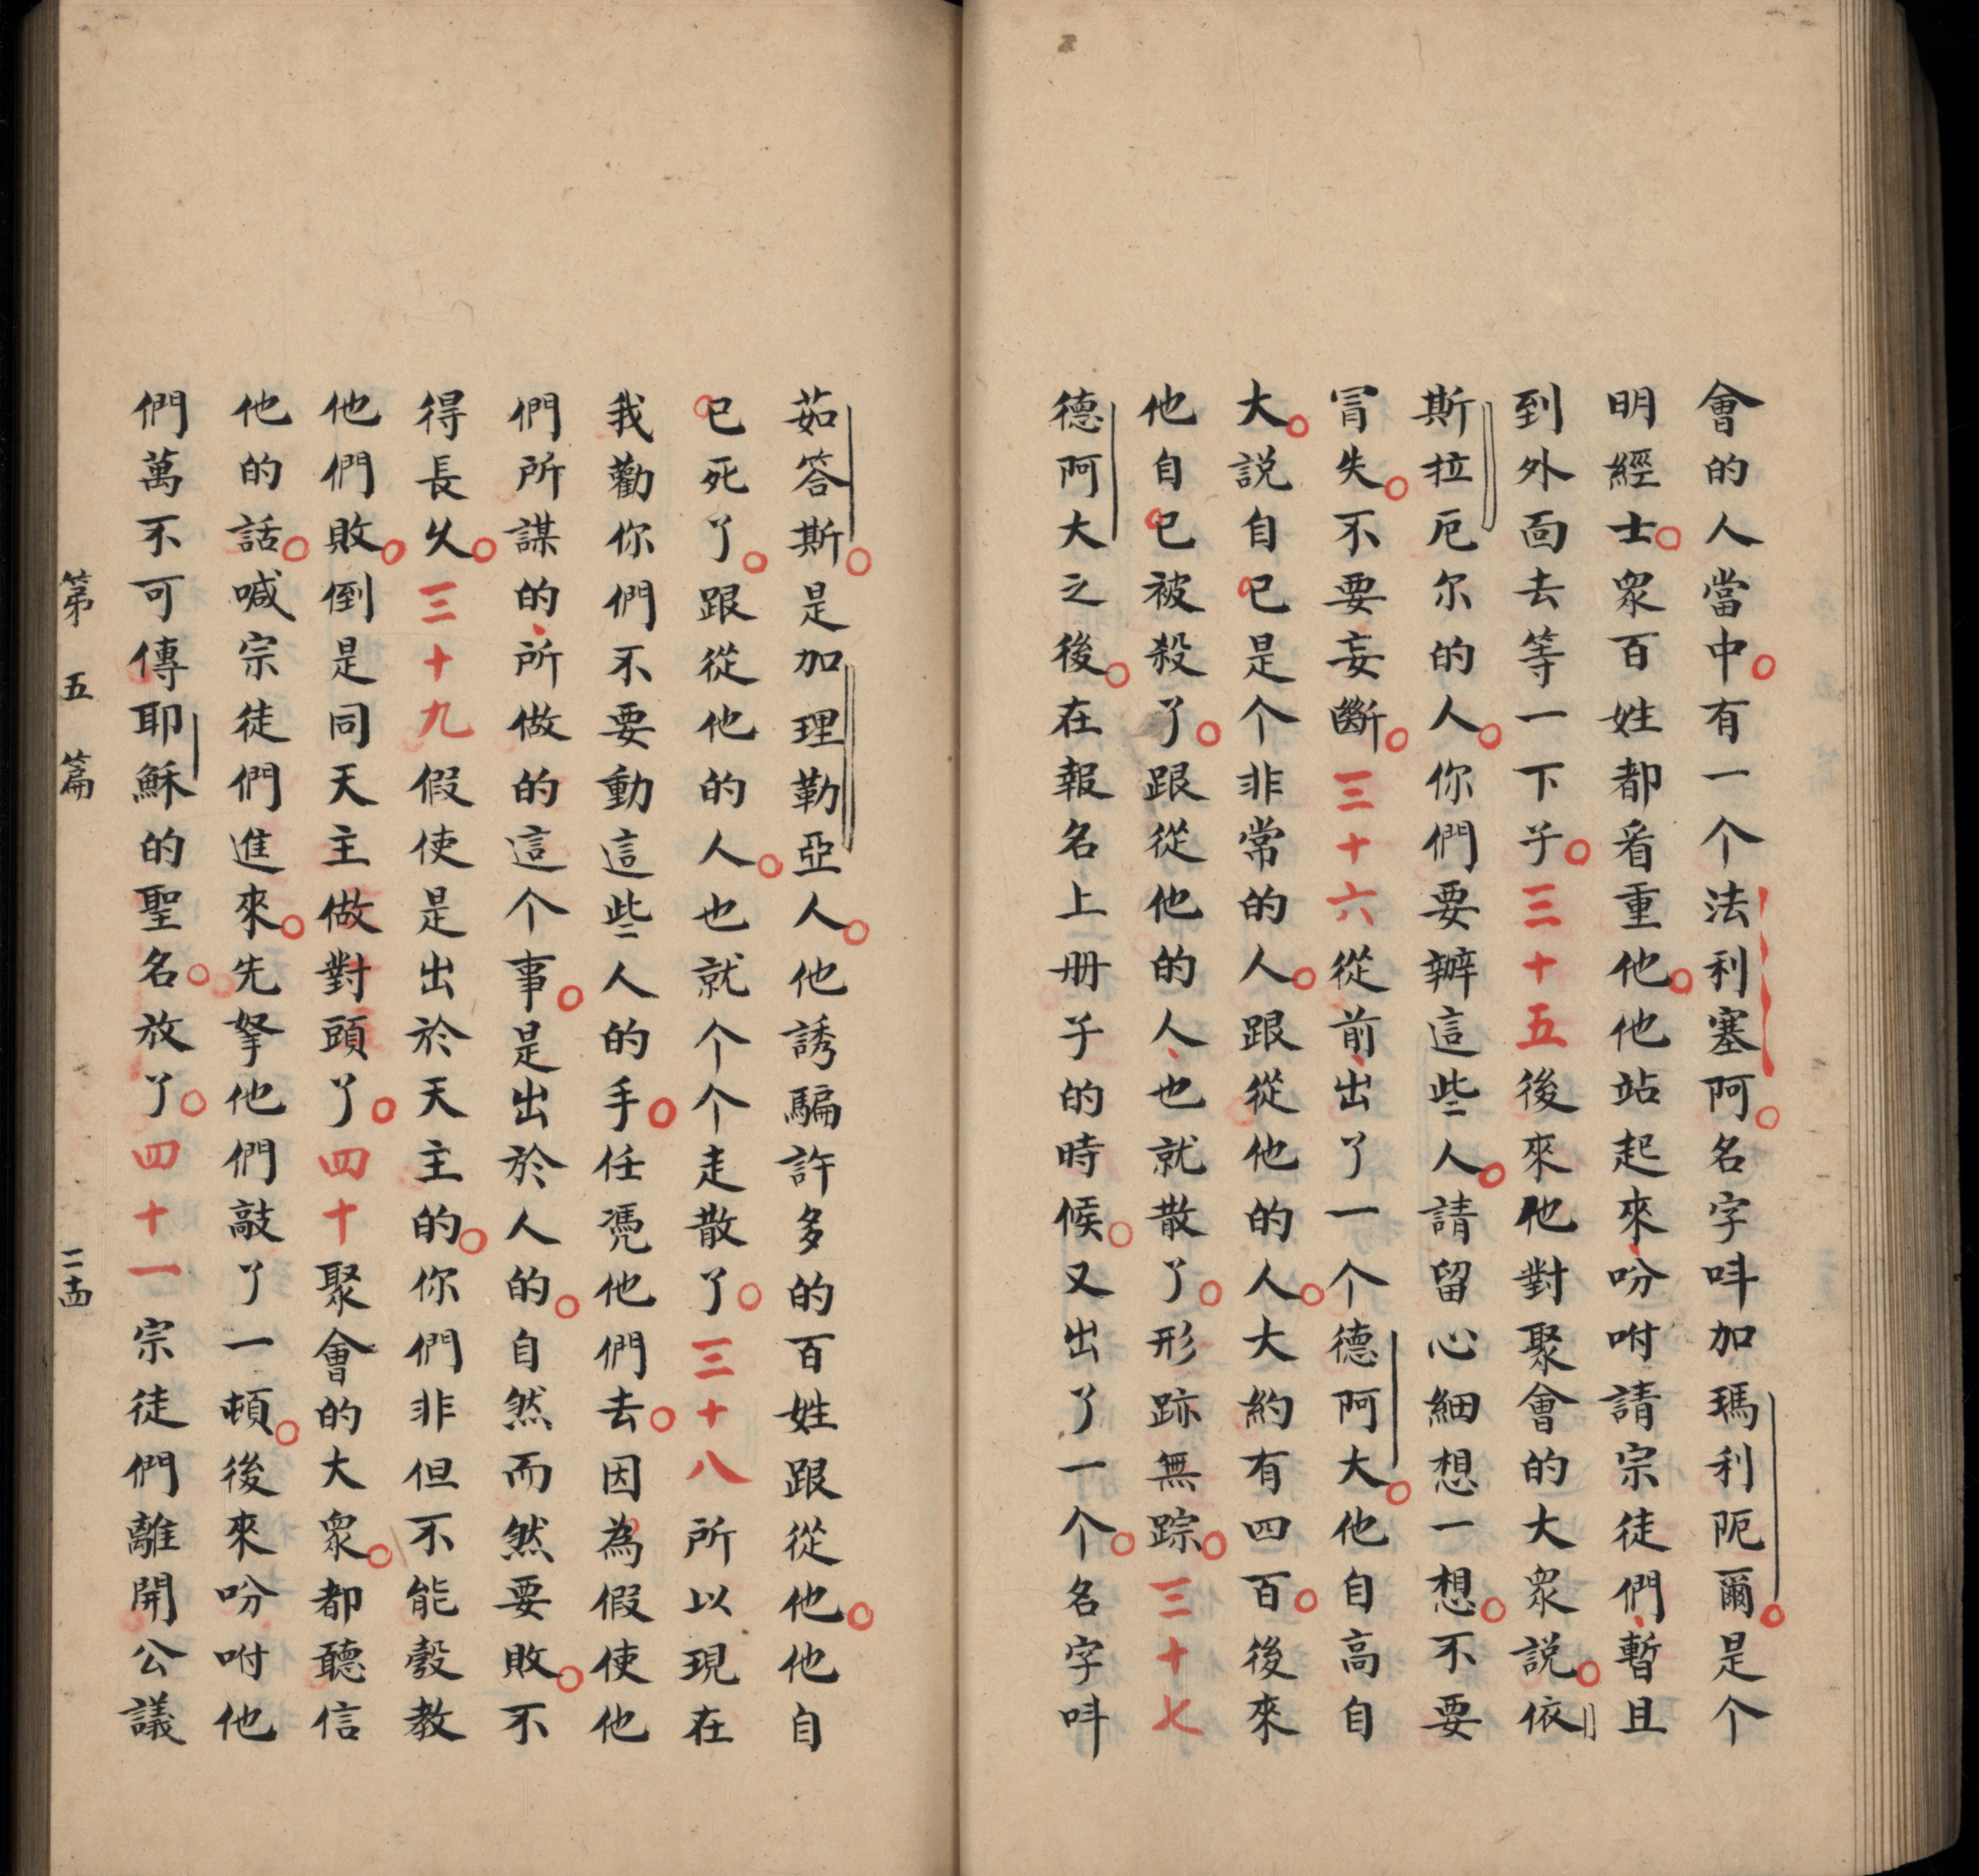 會的人當中。有一个法利塞阿。名字呌加瑪利阨爾。是个
明經士。眾百姓都看重他。他站起來、吩咐請宗徒們、暫且
到外靣去等一下子。三十五後來他對聚會的大眾説。依
斯拉厄尔的人。你們要辦這些人。請留心細想一想。不要
冐失。不要妄斷。三十六從前、出了一个德阿大。他自高自
大。説自己是个非常的人。跟從他的人。大約有四百。後來
他自己被殺了。跟從他的人、也就散了。形跡無踪。三十七
德阿大之後。在報名上册子的時候。又出了一个。名字呌
茹答斯。是加理勒亞人。他誘騙許多的百姓跟從他。他自
己死了。跟從他的人。也就个个走散了。三十八所以現在
我勸你們不要動這些人的手。任凴他們去。因為假使他
們所謀的、所做的這个事。是出於人的。自然而然要敗。不
得長久。三十九假使是出於天主的。你們非但不能彀教
他們敗。倒是同天主做對頭了。四十聚會的大眾。都聽信
他的話。喊宗徒們進來。先拏他們敲了一頓。後來吩咐他
們萬不可傳耶穌的聖名。放了。四十一宗徒們離開公議
第五篇 二十四